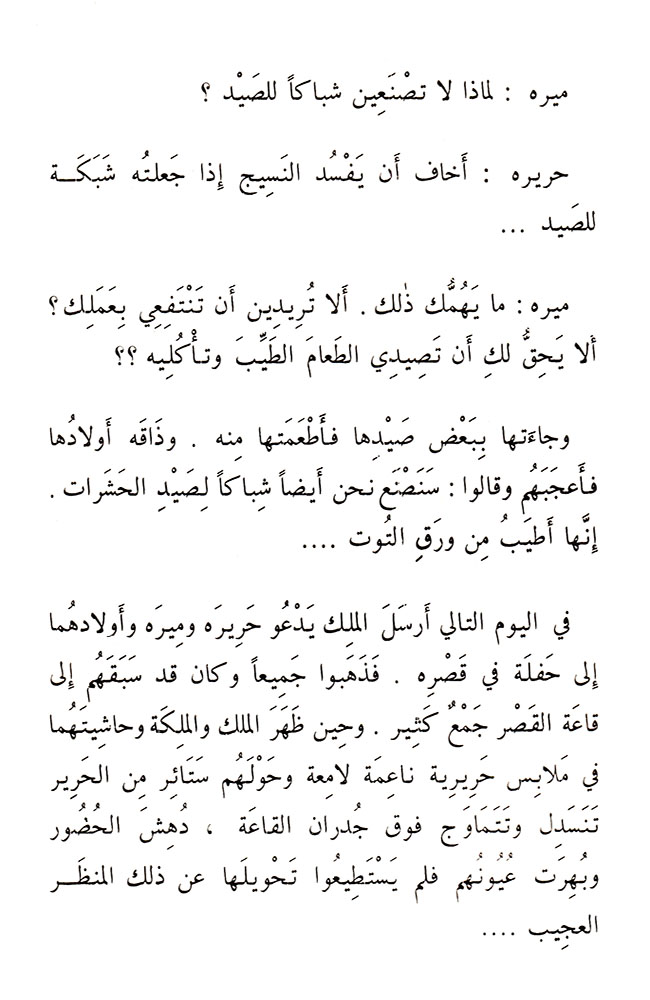 ميره : لماذا لا تصْنَعِين شباكاً للصَيْد ؟
حريره : أَخاف أَن يَفْسُد النَسِيج إِذا جَعلتُه شَبَكَـــة
للصَيد ...
ميره : ما يَهُمُّك ذٰلك . أَلا تُرِيدِين أَن تَنْتَفِعِي بِعَمَلِك ؟
أَلا يَحِقُّ لكِ أَن تَصِيدِي الطَعامَ الطَيِّبَ وتأْكُلِيه ؟؟
وجاءَتها بِبَعْض صَيْدِها فأَطْعَمَتها مِنه . وذَاقَه أَولادُها
فأَعجَبَهُم وقالوا : سَنَصْنَع نحن أَيضاً شِباكاً لِصَيْدِ الحَشَرات .
إِنَّها أَطيَبُ مِن ورَقِ التُوت ....
في اليوم التالي أَرسَلَ المِلِك يَدْعُو حَرِيرَه ومِيرَه وأَولادهُما
إِلى حَفلَة في قَصْرِه . فَذَهَبوا جَمِيعاً وكان قد سَبَقَهُم إِلى
قاعَة القَصْر جَمْعٌ كَثِير . وحِين ظَهَرَ الملك والملِكَة وحاشِيتَهُما
في مَلابِس حَرِيرِية ناعِمَة لامِعة وحَوْلَهُم سَتَائِر مِن الحَرِير
تَنَسَدِل وتَتَمَاوَج فوق جُدران القاعَة ، دُهِشَ الحُضُور
وبُهِرَت عُيُونُهم فلم يَسْتَطِيعُوا تَحْويلَها عن ذلك المنظَــر
العجِيب ....